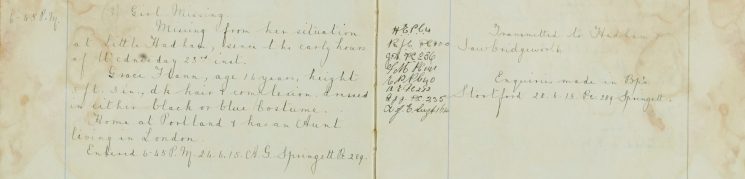 6-45 P.M.
(2) Girl Missing.
Missing from her situation
at Little Hadham, since the early hours
of Wednesday 23rd inst.
Grace Flann, age 16 years, height
5ft. 3in, dk hair & complexion dressed
in either black or blue Costume.
Home at Portland & has an Aunt
living in London.
Entered 6-45 P.M. 24.6.15. A.G. Springett Pc 289.
Transmitted to Hadham &
Sawbridgeworth
Enquiries made in Bp's
Stortford 28.6.15. Pc 289 Springett.